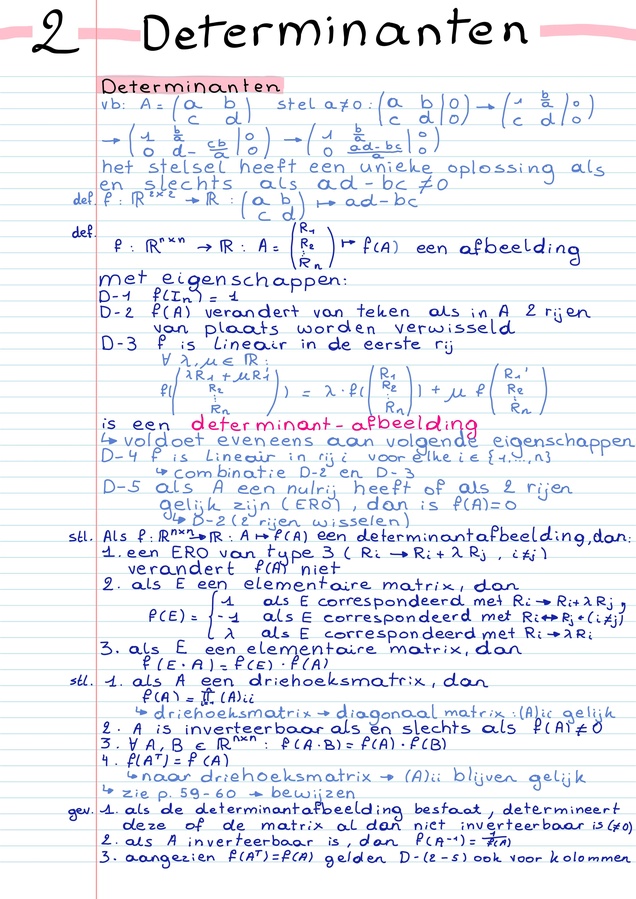 2 Determinanten
Determinanten
vb: A = (a b / c d) stel a≠0: (a b | 0 / c d | 0) → (1 b/a | 0 / c d | 0)
→ (1 b/a | 0 / 0 d - cb/a | 0) → (1 b/a | 0 / 0 ad-bc/a | 0)
het stelsel heeft een unieke oplossing als
en slechts als ad-bc ≠ 0
def. f: ℝ²ˣ² → ℝ : (a b / c d) ↦ ad-bc
def. f: ℝⁿˣⁿ → ℝ : A = (R₁ / R₂ / ⋮ / Rₙ) ↦ f(A) een afbeelding
met eigenschappen:
D-1 f(Iₙ) = 1
D-2 f(A) verandert van teken als in A 2 rijen
van plaats worden verwisseld
D-3 f is lineair in de eerste rij
∀ λ, μ ∈ ℝ:
f((λR₁ + μR₁' / R₂ / ⋮ / Rₙ)) = λ · f(R₁ / R₂ / ⋮ / Rₙ) + μ f(R₁' / R₂ / ⋮ / Rₙ)
is een determinant-afbeelding
↳ voldoet eveneens aan volgende eigenschappen
D-4 f is lineair in rij i voor elke i ∈ {1,...,n}
↳ combinatie D-2 en D-3
D-5 als A een nulrij heeft of als 2 rijen
gelijk zijn (ERO), dan is f(A)=0
↳ D-2 (2 rijen wisselen)
stl. Als f: ℝⁿˣⁿ→ℝ : A ↦ f(A) een determinantafbeelding, dan:
1. een ERO van type 3 (Ri → Ri + λ Rj , i≠j)
verandert f(A) niet
2. als E een elementaire matrix, dan
f(E) = { 1 als E correspondeerd met Ri → Ri + λ Rj ,
-1 als E correspondeerd met Ri ↔ Rj · (i≠j)
λ als E correspondeerd met Ri → λ Ri
3. als E een elementaire matrix, dan
f(E · A) = f(E) · f(A)
stl. 1. als A een driehoeksmatrix, dan
f(A) = ∏ (A)ii
↳ driehoeksmatrix → diagonaal matrix : (A)ii gelijk
2. A is inverteerbaar als en slechts als f(A) ≠ 0
3. ∀ A, B ∈ ℝⁿˣⁿ : f(A·B) = f(A) · f(B)
4. f(Aᵀ) = f(A)
↳ naar driehoeksmatrix → (A)ii blijven gelijk
↳ zie p. 59-60 → bewijzen
gev. 1. als de determinantafbeelding bestaat, determineert
deze of de matrix al dan niet inverteerbaar is (≠0)
2. als A inverteerbaar is, dan f(A⁻¹) = 1/f(A)
3. aangezien f(Aᵀ)=f(A) gelden D-(2-5) ook voor kolommen